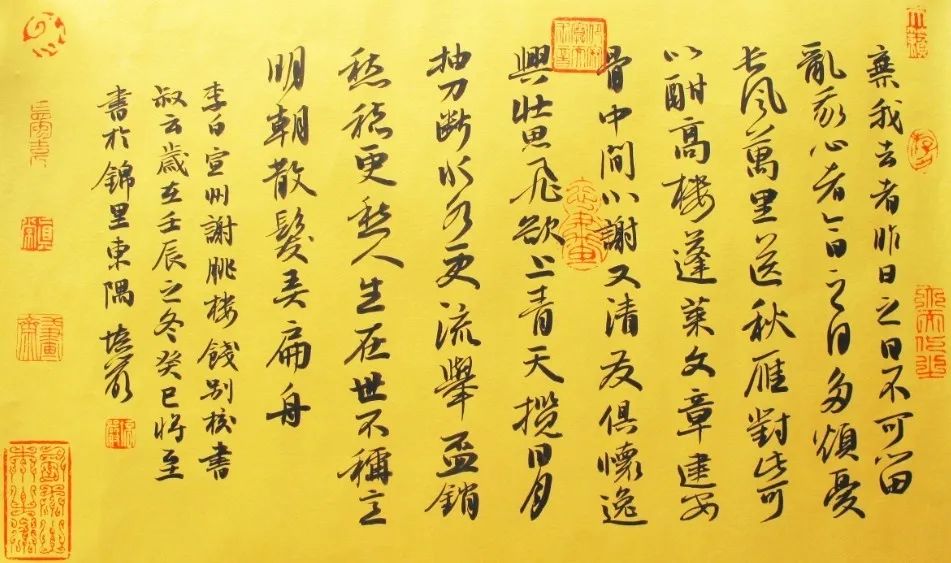 棄我去者昨日之日不可留
亂我心者今日之日多煩憂
长風萬里送秋雁對此可
以酣高楼蓬萊文章建安
骨中間小謝又清发俱懷逸
興壯思飛欲上青天攬日月
抽刀断水水更流舉盃銷
愁愁更愁人生在世不稱意
明朝散髮弄扁舟
李白宣州謝朓楼餞別校書
叔云歲在壬辰之冬癸巳將至
書於錦里東隅